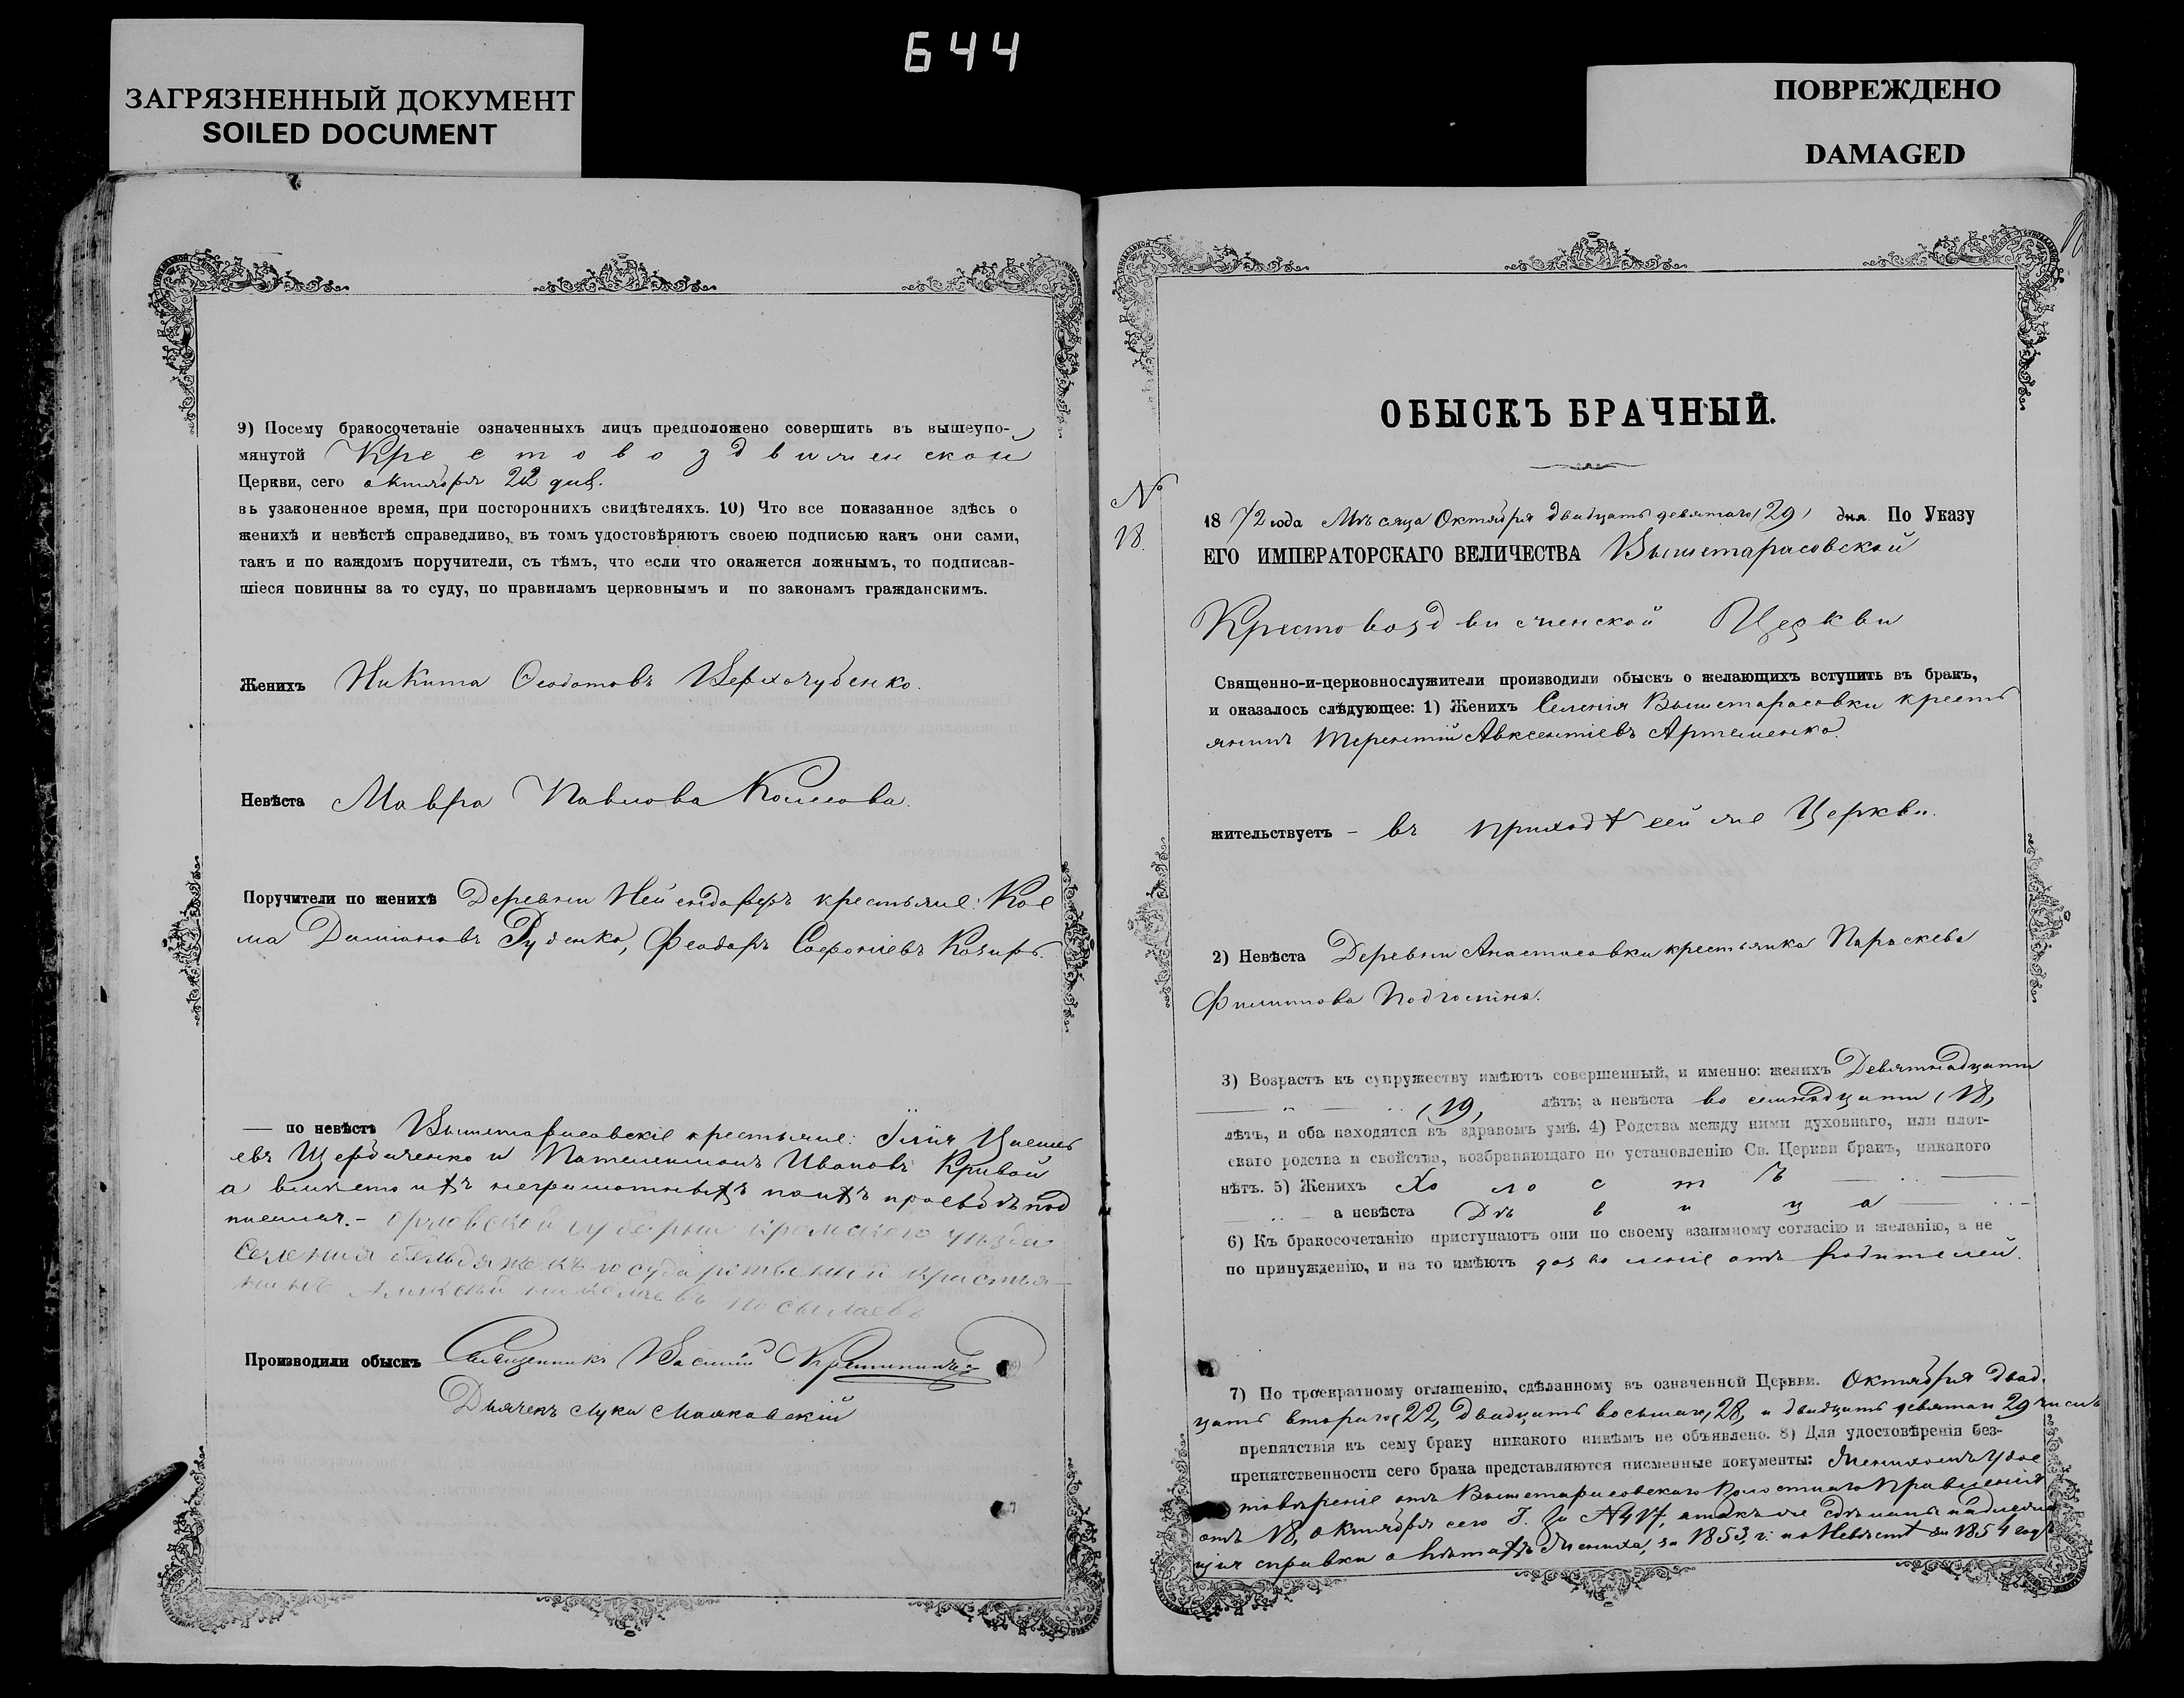 644
ЗАГРЯЗНЕННЫЙ ДОКУМЕНТ
SOILED DOCUMENT
ПОВРЕЖДЕНО
DAMAGED
9) Посему бракосочетаніе означенныхъ лицъ предположено совершить въ вышеупо-
мянутой Крестовоздвиженской
Церкви, сего октября 22 дня.
въ узаконенное время, при постороннихъ свидѣтеляхъ. 10) Что все показанное здѣсь о
женихѣ и невѣстѣ справедливо, въ томъ удостовѣряютъ своею подписью какъ они сами,
такъ и по каждомъ поручители, съ тѣмъ, что если что окажется ложнымъ, то подписав-
шіеся повинны за то суду, по правиламъ церковнымъ и по законамъ гражданскимъ.
Женихъ Никита Ѳеодотовъ Верхогубенко.
Невѣста Мавра Павлова
Поручители по женихѣ Деревни Нейендорфъ крестьяне: Кос
ма Даміановъ Руденко, Феодоръ Софоніевъ Козирь.
— по невѣстѣ Вышетарасовскіе крестьяне: Илія
евъ Щербаченко и Пантелеимонъ Ивановъ Кривой
а вмѣсто ихъ неграмотныхъ поихъ прозьбѣ под
писался. - орловской губерніи кромского уѣзда
Селенія государственный крестья-
нинъ Алексѣй николаевъ посылаевъ
Производили обыскъ Священникъ Василій
Дьячекъ Лука Маяковскій
ОБЫСКЪ БРАЧНЫЙ.
№
18.
18 72 года Мѣсяца Октября двадцать девятаго (29) дня По Указу
ЕГО ИМПЕРАТОРСКАГО ВЕЛИЧЕСТВА Вышетарасовской
Крестовоздвиженской Церкви
Священно-и-церковнослужители производили обыскъ о желающихъ вступить въ бракъ,
и оказалось слѣдующее: 1) Женихъ Селенія Вышетарасовки кресть
янинъ Терентій Авксентіевъ Артеменко.
жительствуетъ - въ приходѣ сей же Церкви.
2) Невѣста Деревни Анастасовки крестьянка Параскева
Филиппова
3) Возрастъ къ супружеству имѣютъ совершенный, и именно: женихъ Девятнадцати
(19, лѣтъ; а невѣста во семнадцати (18,
лѣтъ, и оба находятся въ здравомъ умѣ. 4) Родства между ними духовнаго, или плот-
скаго родства и свойства, возбраняющаго по установленію Св. Церкви бракъ, никакого
нѣтъ. 5) Женихъ Холостъ
а невѣста Дѣвица
6) Къ бракосочетанію приступаютъ они по своему взаимному согласію и желанію, а не
по принужденію, и на то имѣютъ дозволеніе отъ родителей.
7) По троекратному оглашенію, сдѣланному въ означенной Церкви. Октября двад.
цать втораго (22, двадцать восьмаго, 28, и двадцать девятаго 29 числъ
препятствія къ сему браку никакого никѣмъ не объявлено. 8) Для удостовѣренія без-
препятственности сего брака представляются писменные документы: Женихомъ Удос
товѣреніе отъ Вышетарасовскаго Волостнаго Правленія
отъ 18, октября сего Г. За № 417, атакже сдѣланы надлежа
щія справки о лѣтахъ Жениха, за 1853, г. и о Невѣстѣ за 1854 годъ